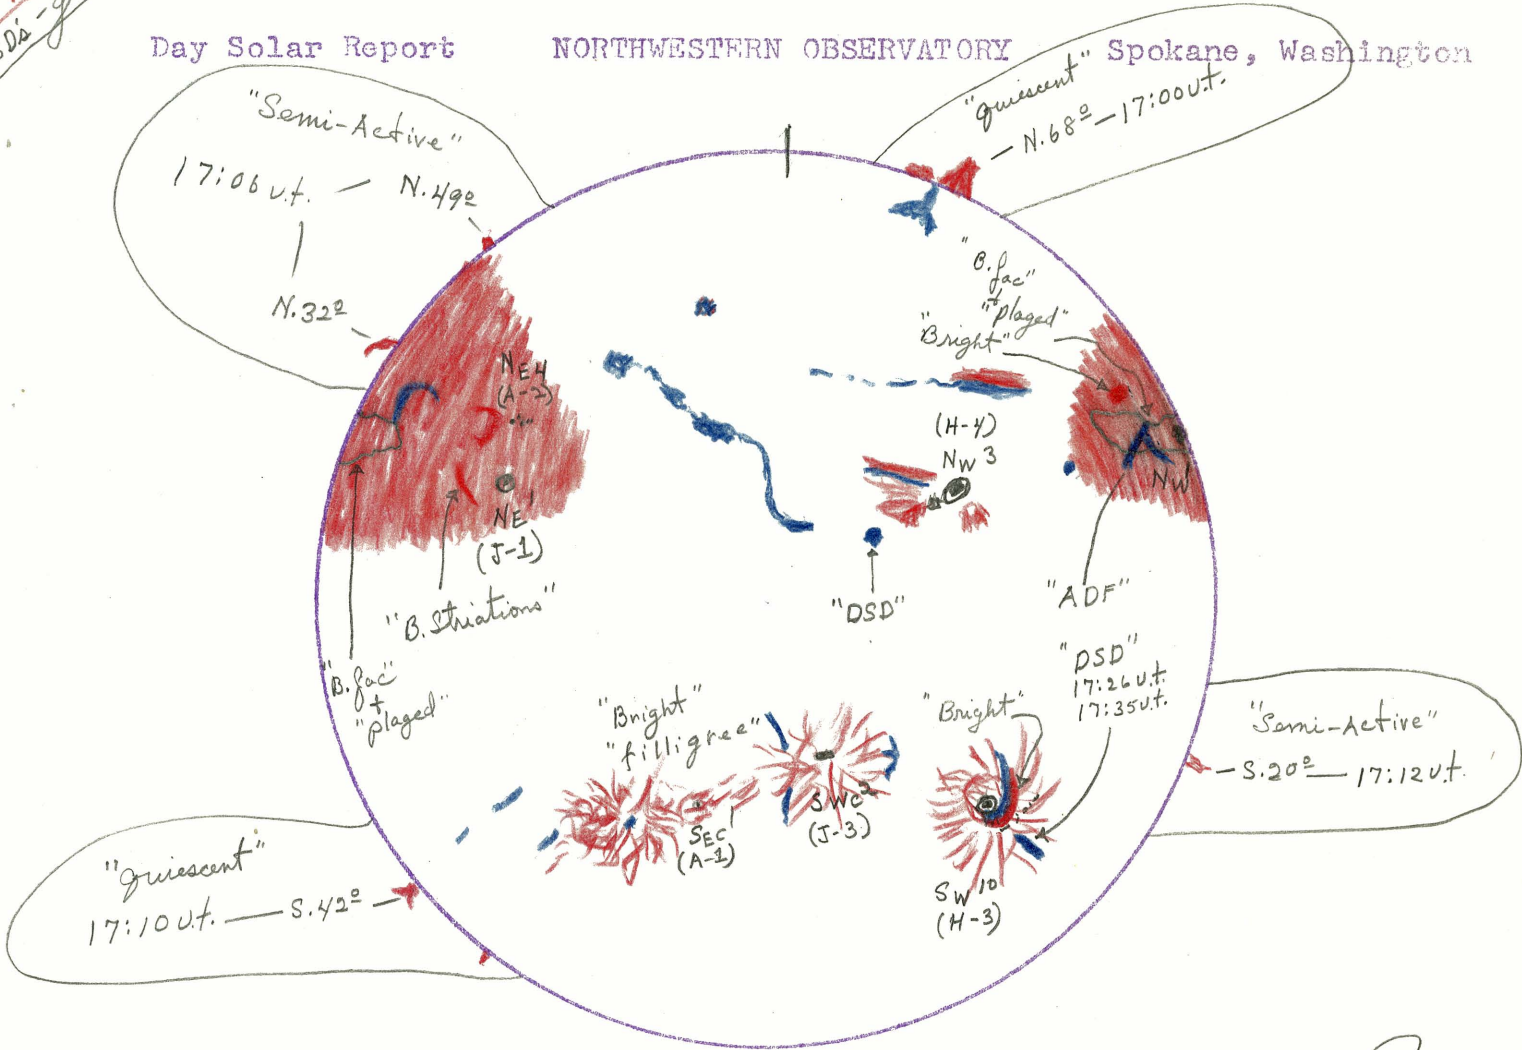 Day Solar Report NORTHWESTERN OBSERVATORY Spokane, Washington
"Semi-Active"
17:06 u.t. — N.49º
N.32º
"quiescent"
— N.68º — 17:00 u.t.
"B.fac"
+
"plaged"
"Bright"
NE4
(A-2)
NE1
(J-1)
"B. Striations"
"B.fac"
+
"plaged"
(H-4)
NW3
NW1
"DSD"
"ADF"
"DSD"
17:26 u.t.
17:35 u.t.
"Bright"
"Bright"
"filligree"
SEC1
(A-1)
SWC2
(J-3)
SW10
(H-3)
"Semi-Active"
— S.20º — 17:12 u.t.
"quiescent"
17:10 u.t. — S.42º —